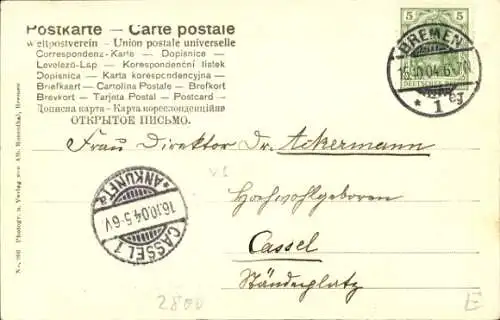 Postkarte — Carte postale
Weltpostverein - Union postale universelle
Correspondenz-Karte — Dopisnice
Levelező-Lap — Korespondenční lístek
Dopisnica — Karta korespondencyjna
Briefkaart - Cartolina Postale - Brefkort
Brevkort — Tarjeta Postal — Postcard
Дописна карта - Карта кореспонденційна
ОТКРЫТОЕ ПИСЬМО.
5 5
BREMEN
16.10.04.6-7N
DEUTSCHES
* 1 *
Frau Direktor Dr. Ackermann
Hochwohlgeboren
Cassel
Ständeplatz
*ANKUNFT*
16.10.04.5-6V.
CASSEL 1
No. Photogr. u. Verlag von Alb. Rosenthal, Bremen
2800
E